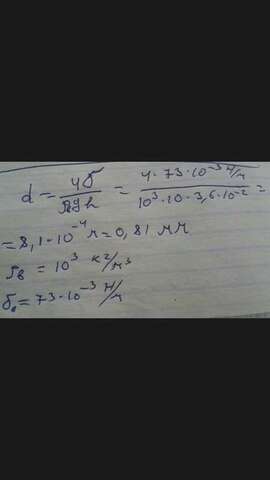 d = 4б/ρgh = 4·73·10⁻³ Н/м / 10³·10·3,6·10⁻² =
= 8,1·10⁻⁴ м = 0,81 мм
ρв = 10³ кг/м³
бв = 73·10⁻³ Н/м